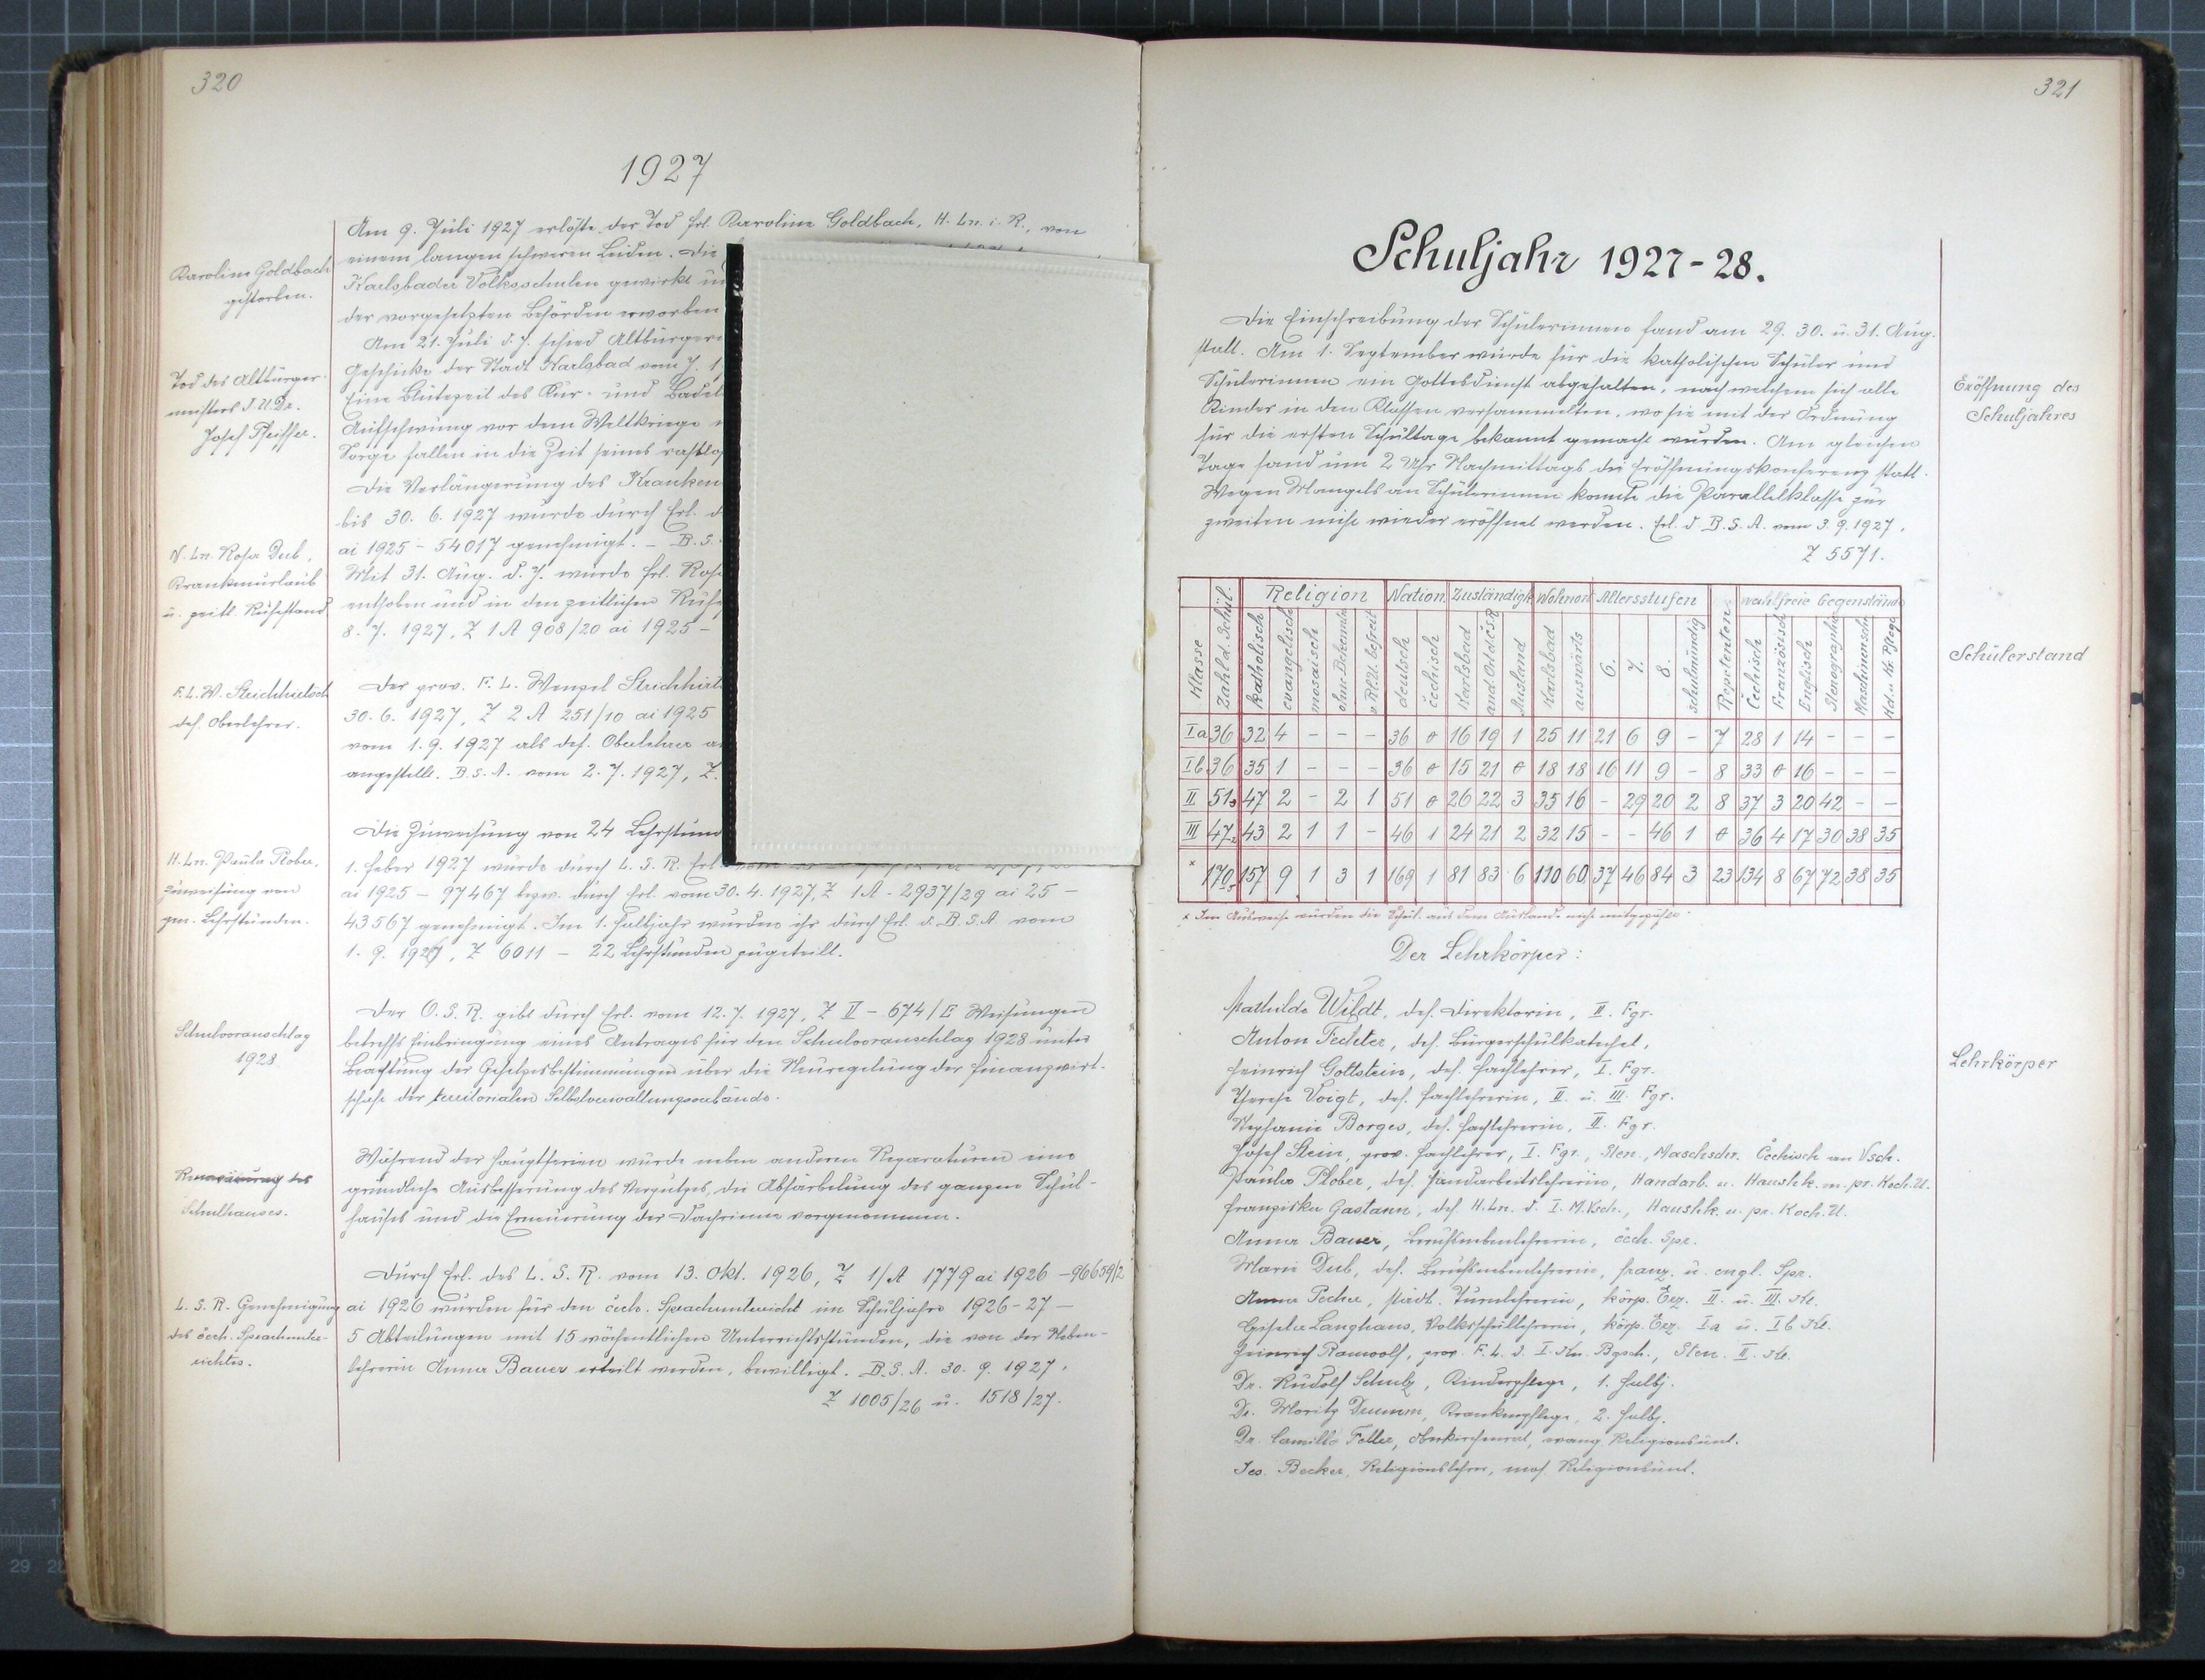 320
1927
Am 9. Juli 1927 erlöste der Tod Frl. Karoline Goldbach, H. Ln. i. R., von
einem langen schweren Leiden. Die
Karoline Goldbach
gestorben.
Karlsbader Volksschulen gewirkt un
der vorgesetzten Behörden erworben
Am 21. Juli d. J. schied Altbürger
Tod des Altbürger-
meisters J. U. Dr.
Josef Pfeiffer.
Geschicke der Stadt Karlsbad vom J. 1
Eine Blütezeit des Kur- und Bade
Aufschwung vor dem Weltkriege
Sorge fallen in die Zeit seines rastlo
Die Verlängerung des Kranken
bis 30. 6. 1927 wurde durch Erl. d
V. Ln. Rosa Dub,
Krankenurlaub
u. zeitl. Ruhestand
ai 1925 - 54017 genehmigt. - B. S.
Mit 31. Aug. d. J. wurde Frl. Rosa
enthoben und in den zeitlichen Ruhe
8. 7. 1927, Z 1 A 908/20 ai 1925 -
F. L. W.
def. Oberlehrer.
Der prov. F. L. Wenzel
30. 6. 1927, Z 2 A 251/10 ai 1925
vom 1. 9. 1927 als def. Oberlehrer a
angestellt. B. S. A. vom 2. 7. 1927, Z.
Die Zuweisung von 24 Lehrstun
H. Ln. Paula Plober,
Zuweisung von
Lehrstunden.
1. Feber 1927 wurde durch L. S. R. Erl.
ai 1925 - 97467 bezw. durch Erl. vom 30. 4. 1927, Z 1 A - 2937/29 ai 25 -
43567 genehmigt. Im 1. Halbjahr wurden ihr durch Erl. d. B. S. A vom
1. 9. 1927, Z 6011 - 22 Lehrstunden zugeteilt.
Schulvoranschlag
1928
Der O. S. R. gibt durch Erl. vom 12. 7. 1927, Z II - 674/E Weisungen
betreffs Einbringung eines Antrages für den Schulvoranschlag 1928 unter
Beachtung der Gesetzesbestimmungen über die Neuregelung der Finanzwirt-
schaft der territorialen Selbstverwaltungsverbände.
Schulhauses.
Während der Hauptferien wurde neben anderen Reparaturen eine
gründliche Ausbesserung des Verputzes, die Abfärbelung des ganzen Schul-
hauses und die Erneuerung der Dachrinne vorgenommen.
L. S. R. Genehmigung
des čech. Sprachunter-
richtes.
Durch Erl. des L. S. R. vom 13. Okt. 1926, Z 1/A 1779 ai 1926 - 96659/2
ai 1926 wurden für den čech. Sprachunterricht im Schuljahre 1926-27 -
5 Abteilungen mit 15 wöchentlichen Unterrichtsstunden, die von der Neben-
lehrerin Anna Bauer erteilt werden, bewilligt. B. S. A. 30. 9. 1927,
Z 1005/26 u. 1518/27.
321
Schuljahr 1927-28.
Die Einschreibung der Schülerinnen fand am 29. 30. u. 31. Aug.
statt. Am 1. September wurde für die katholischen Schüler und
Schülerinnen ein Gottesdienst abgehalten, nach welchem sich alle
Kinder in den Klassen versammelten, wo sie mit der Ordnung
für die ersten Schultage bekannt gemacht wurden. Am gleichen
Tage fand um 2 Uhr Nachmittags die Eröffnungskonferenz statt.
Wegen Mangels an Schülerinnen konnte die Parallelklasse zur
zweiten nicht wieder eröffnet werden. Erl. d. B. S. A. vom 3. 9. 1927,
Z 5571.
Eröffnung des
Schuljahres
Schülerstand
Religion Nation. Zuständigk. Wohnort Altersstufen wahlfreie Gegenstände
Klasse Zahl d. Schül. katholisch evangelisch mosaisch ohne Bekenntn. v. Rlu. befreit deutsch čechisch Karlsbad and. Ort d. ČSR Ausland Karlsbad auswärts 6. 7. 8. schulmündig Repetenten Čechisch Französisch Englisch Stenographie Maschinensch. Kd. u. Kr. Pflege
Ia 36 32 4 - - - 36 0 16 19 1 25 11 21 6 9 - 7 28 1 14 - - -
Ib 36 35 1 - - - 36 0 15 21 0 18 18 16 11 9 - 8 33 0 16 - - -
II 51 3 47 2 - 2 1 51 0 26 22 3 35 16 - 29 20 2 8 37 3 20 42 - -
III 47 2 43 2 1 1 - 46 1 24 21 2 32 15 - - 46 1 0 36 4 17 30 38 35
x 170 5 157 9 1 3 1 169 1 81 83 6 110 60 37 46 84 3 23 134 8 67 72 38 35
x Im Ausweise wurden die Schül. aus dem Auslande nicht mitgezählt.
Der Lehrkörper:
Lehrkörper
Mathilde Wildt, def. Direktorin, II. Fgr.
Anton Fechter, def. Bürgerschulkatechet,
Heinrich Gottstein, def. Fachlehrer, I. Fgr.
Therese Voigt, def. Fachlehrerin, II. u. III. Fgr.
Stephanie Borges, def. Fachlehrerin, II. Fgr.
Josef Stein, prov. Fachlehrer, I. Fgr., Sten., Maschschr. Čechisch an Vsch.
Paula Plober, def. Handarbeitslehrerin, Handarb. u. Haushk. m. pr. Koch. U.
Franziska Gastann, def. H. Ln. d. I. M. Vsch., Haushk. u. pr. Koch. U.
Anna Bauer, Berufsnebenlehrerin, čech. Spr.
Marie Dub, def. Berufsnebenlehrerin, franz. u. engl. Spr.
Anna Pecher, städt. Turnlehrerin, körp. Erz. II. u. III. Kl.
Gisela Langhans, Volksschullehrerin, körp. Erz. Ia u. Ib Kl.
Heinrich Ramwolf, prov. F. L. d. I. Kn. Bgsch., Sten. II. Kl.
Dr. Rudolf Schulz, Kinderpflege, 1. Halbj.
Dr. Moritz Drumm, Krankenpflege, 2. Halbj.
Dr. Camillo Feller, Oberkirchenrat, evang. Religionsunt.
Jos. Becker, Religionslehrer, mos. Religionsunt.